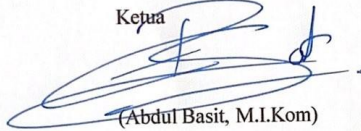 Ketua
(Abdul Basit, M.I.Kom)